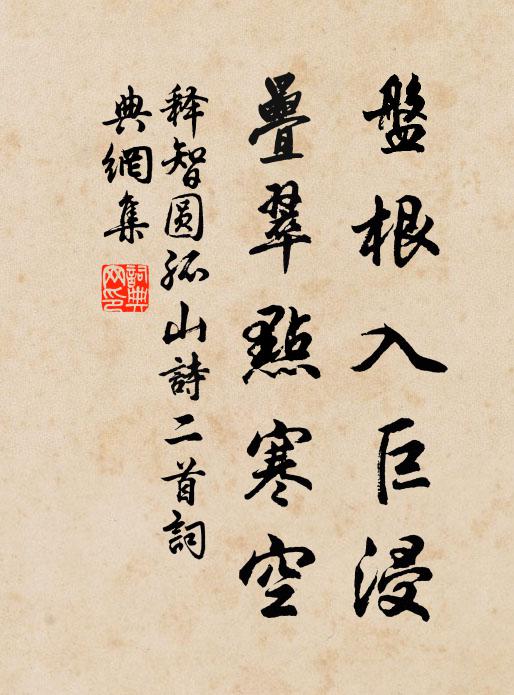 盤根入巨浸
疊翠點寒空
释智圆孤山詩二首詞
典網集
詞典網印